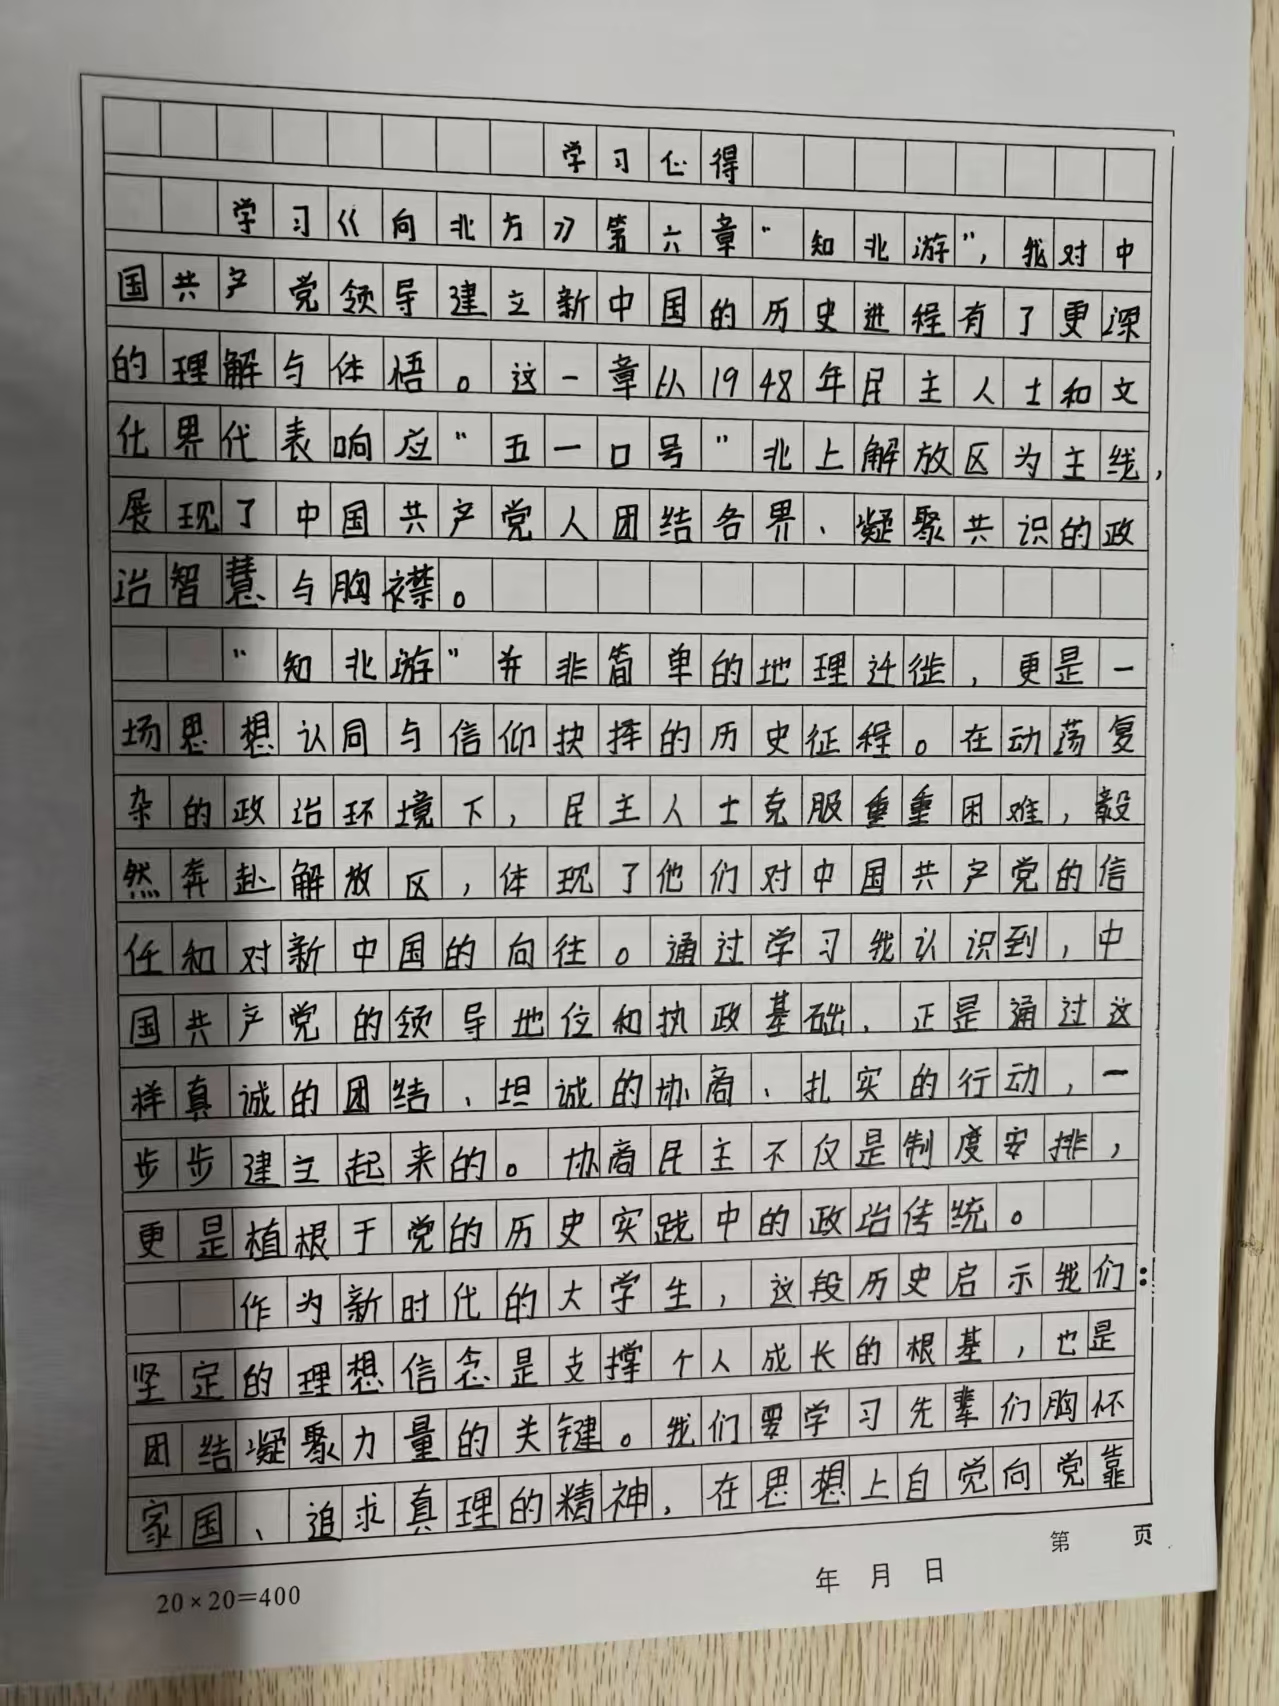 学习心得
学习《向北方》第六章“知北游”，我对中
国共产党领导建立新中国的历史进程有了更深
的理解与体悟。这一章从1948年民主人士和文
化界代表响应“五一口号”北上解放区为主线，
展现了中国共产党人团结各界、凝聚共识的政
治智慧与胸襟。
“知北游”并非简单的地理迁徙，更是一
场思想认同与信仰抉择的历史征程。在动荡复
杂的政治环境下，民主人士克服重重困难，毅
然奔赴解放区，体现了他们对中国共产党的信
任和对新中国的向往。通过学习我认识到，中
国共产党的领导地位和执政基础，正是通过这
样真诚的团结、坦诚的协商、扎实的行动，一
步步建立起来的。协商民主不仅是制度安排，
更是植根于党的历史实践中的政治传统。
作为新时代的大学生，这段历史启示我们：
坚定的理想信念是支撑个人成长的根基，也是
团结凝聚力量的关键。我们要学习先辈们胸怀
家国、追求真理的精神，在思想上自觉向党靠
第 页
年 月 日
20×20=400